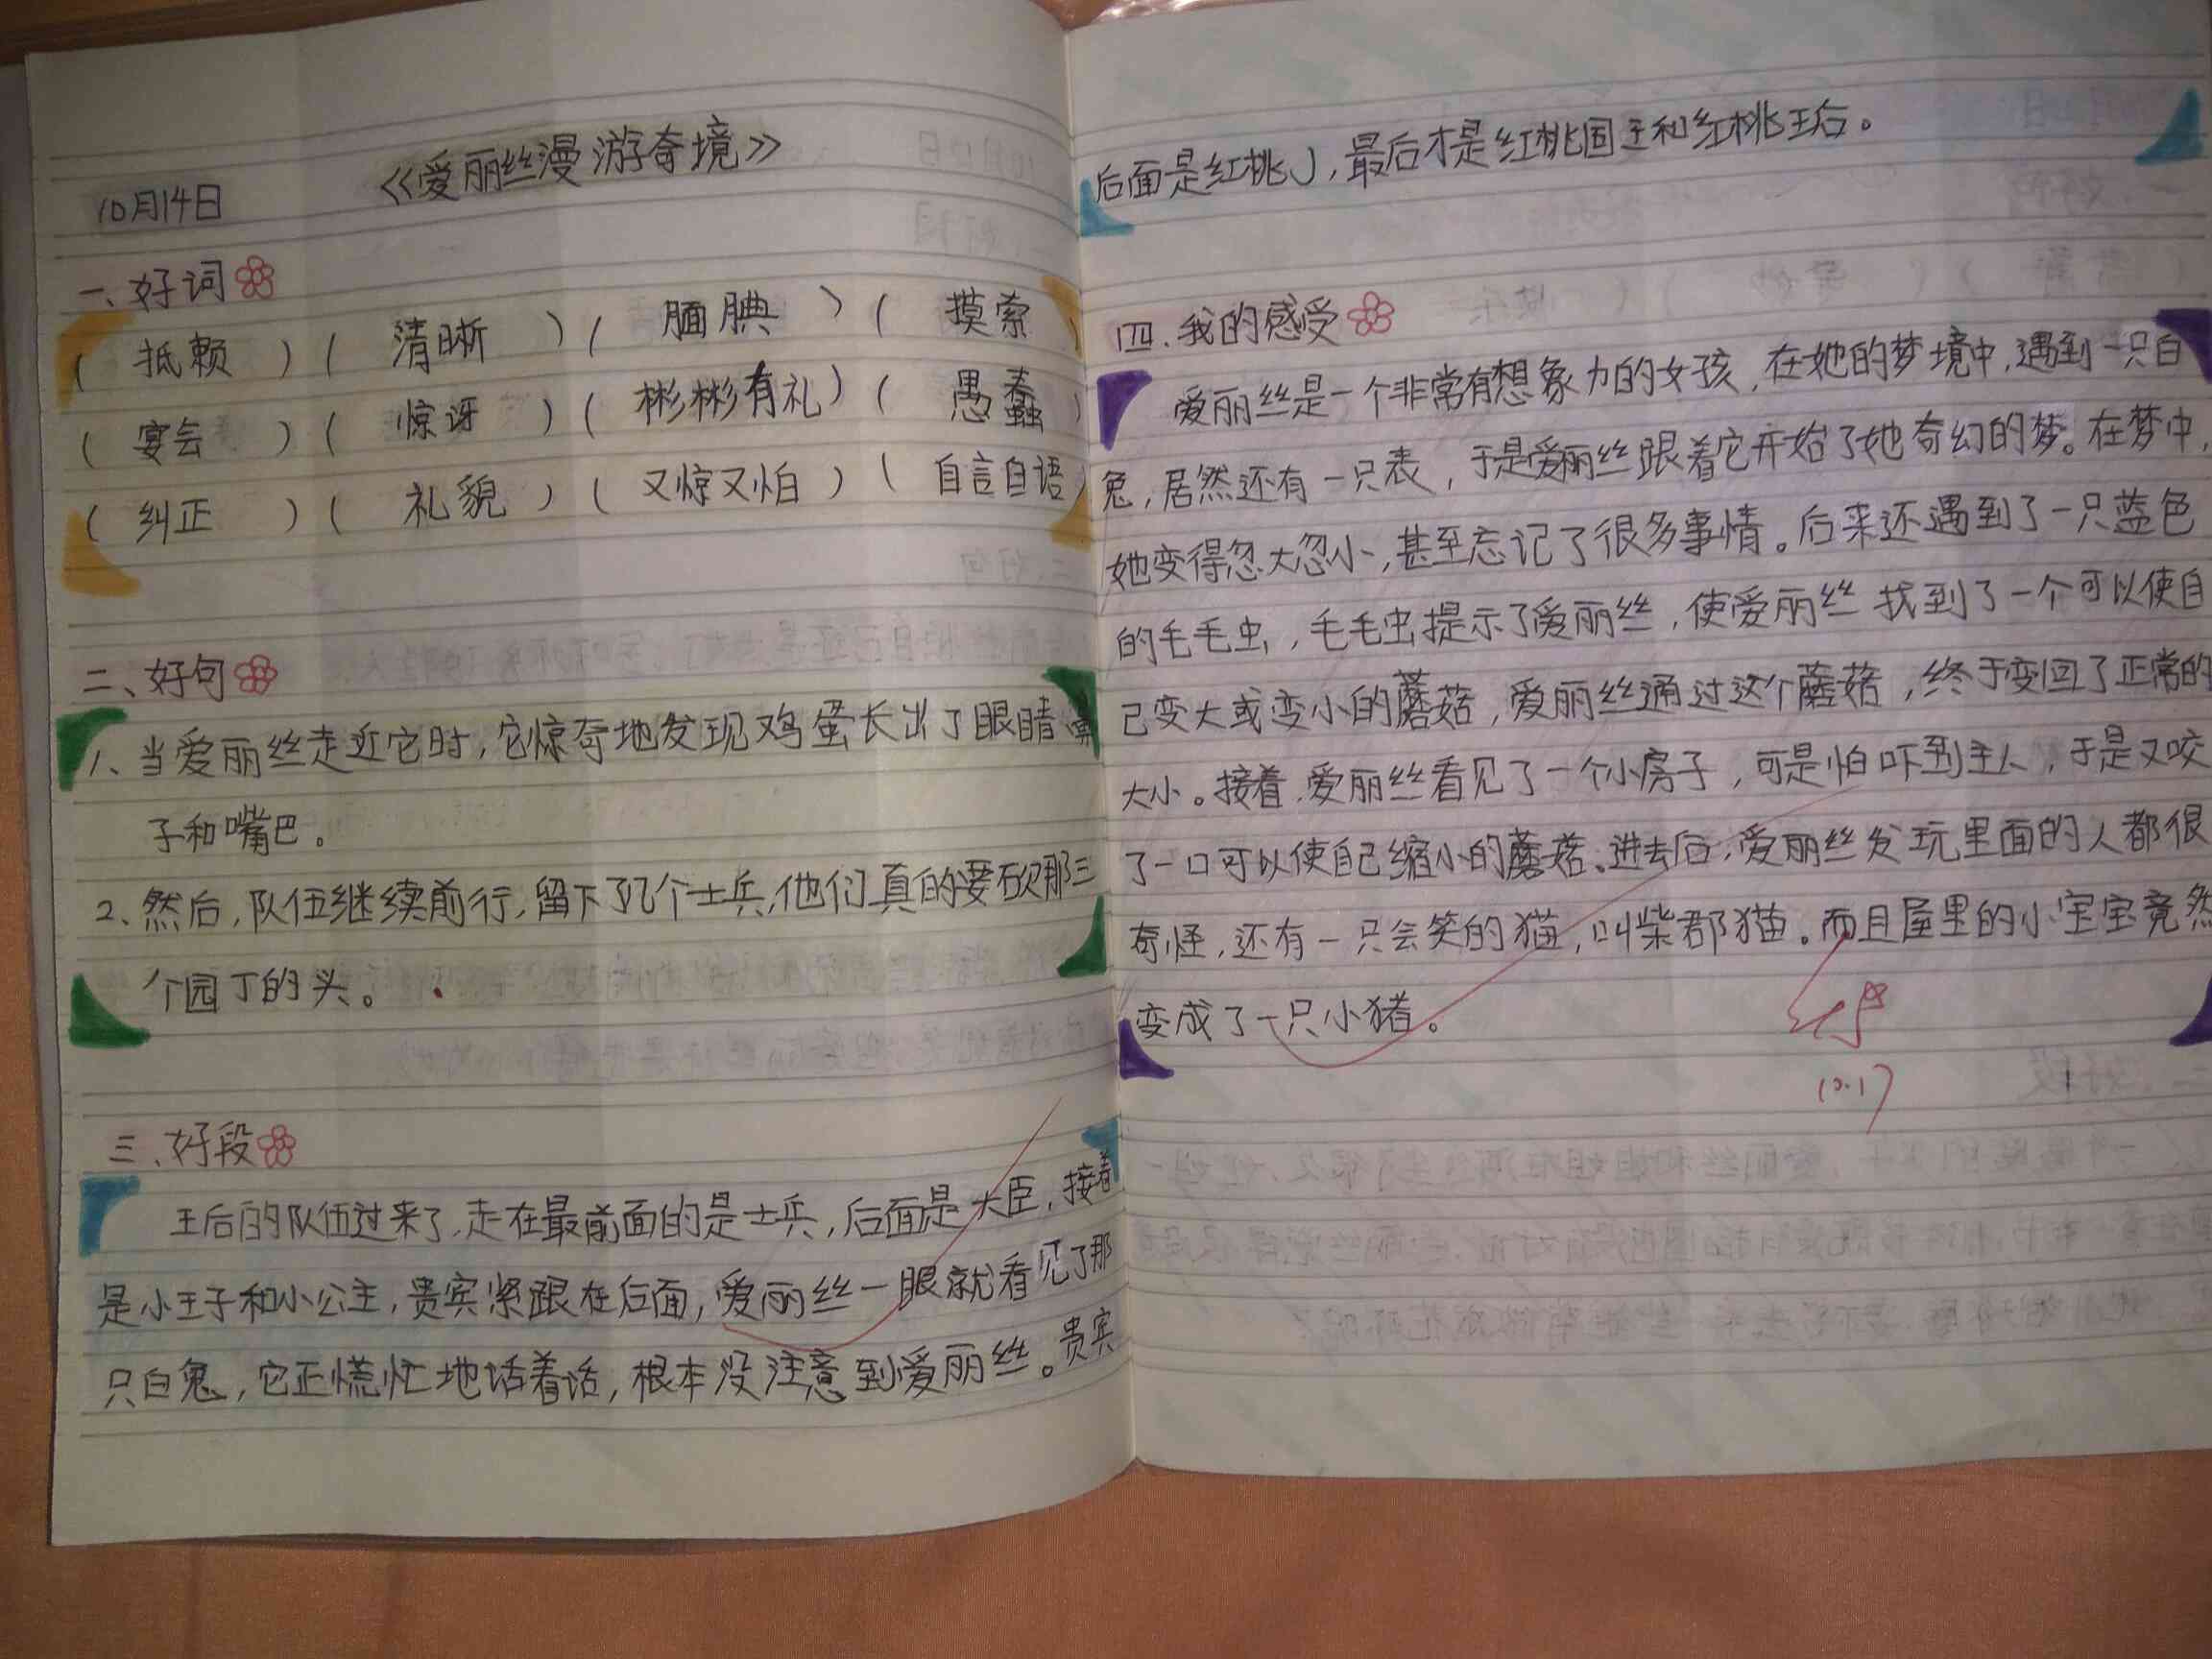 《爱丽丝漫游奇境》
10月14日
一、好词
( 抵赖 ) ( 清晰 ) ( 腼腆 ) ( 摸索 )
( 宴会 ) ( 惊讶 ) ( 彬彬有礼 ) ( 愚蠢 )
( 纠正 ) ( 礼貌 ) ( 又惊又怕 ) ( 自言自语 )
二、好句
1、当爱丽丝走近它时,它惊奇地发现鸡蛋长出了眼睛
子和嘴巴。
2、然后,队伍继续前行,留下了几个士兵,他们真的要砍那三
个园丁的头。
三、好段
王后的队伍过来了,走在最前面的是士兵,后面是大臣,接着
是小王子和小公主,贵宾紧跟在后面,爱丽丝一眼就看见了那
只白兔,它正慌忙地话着话,根本没注意到爱丽丝。贵宾
后面是红桃J,最后才是红桃国王和红桃王后。
四、我的感受
爱丽丝是一个非常有想象力的女孩,在她的梦境中,遇到一只白
兔,居然还有一只表,于是爱丽丝跟着它开始了她奇幻的梦。在梦中,
她变得忽大忽小,甚至忘记了很多事情。后来还遇到了一只蓝色
的毛毛虫,毛毛虫提示了爱丽丝,使爱丽丝找到了一个可以使自
己变大或变小的蘑菇,爱丽丝通过这个蘑菇,终于变回了正常的
大小。接着,爱丽丝看见了一个小房子,可是怕吓到主人,于是又咬
了一口可以使自己缩小的蘑菇。进去后,爱丽丝发玩里面的人都很
奇怪,还有一只会笑的猫,叫柴郡猫。而且屋里的小宝宝竟然
变成了一只小猪。
10.17